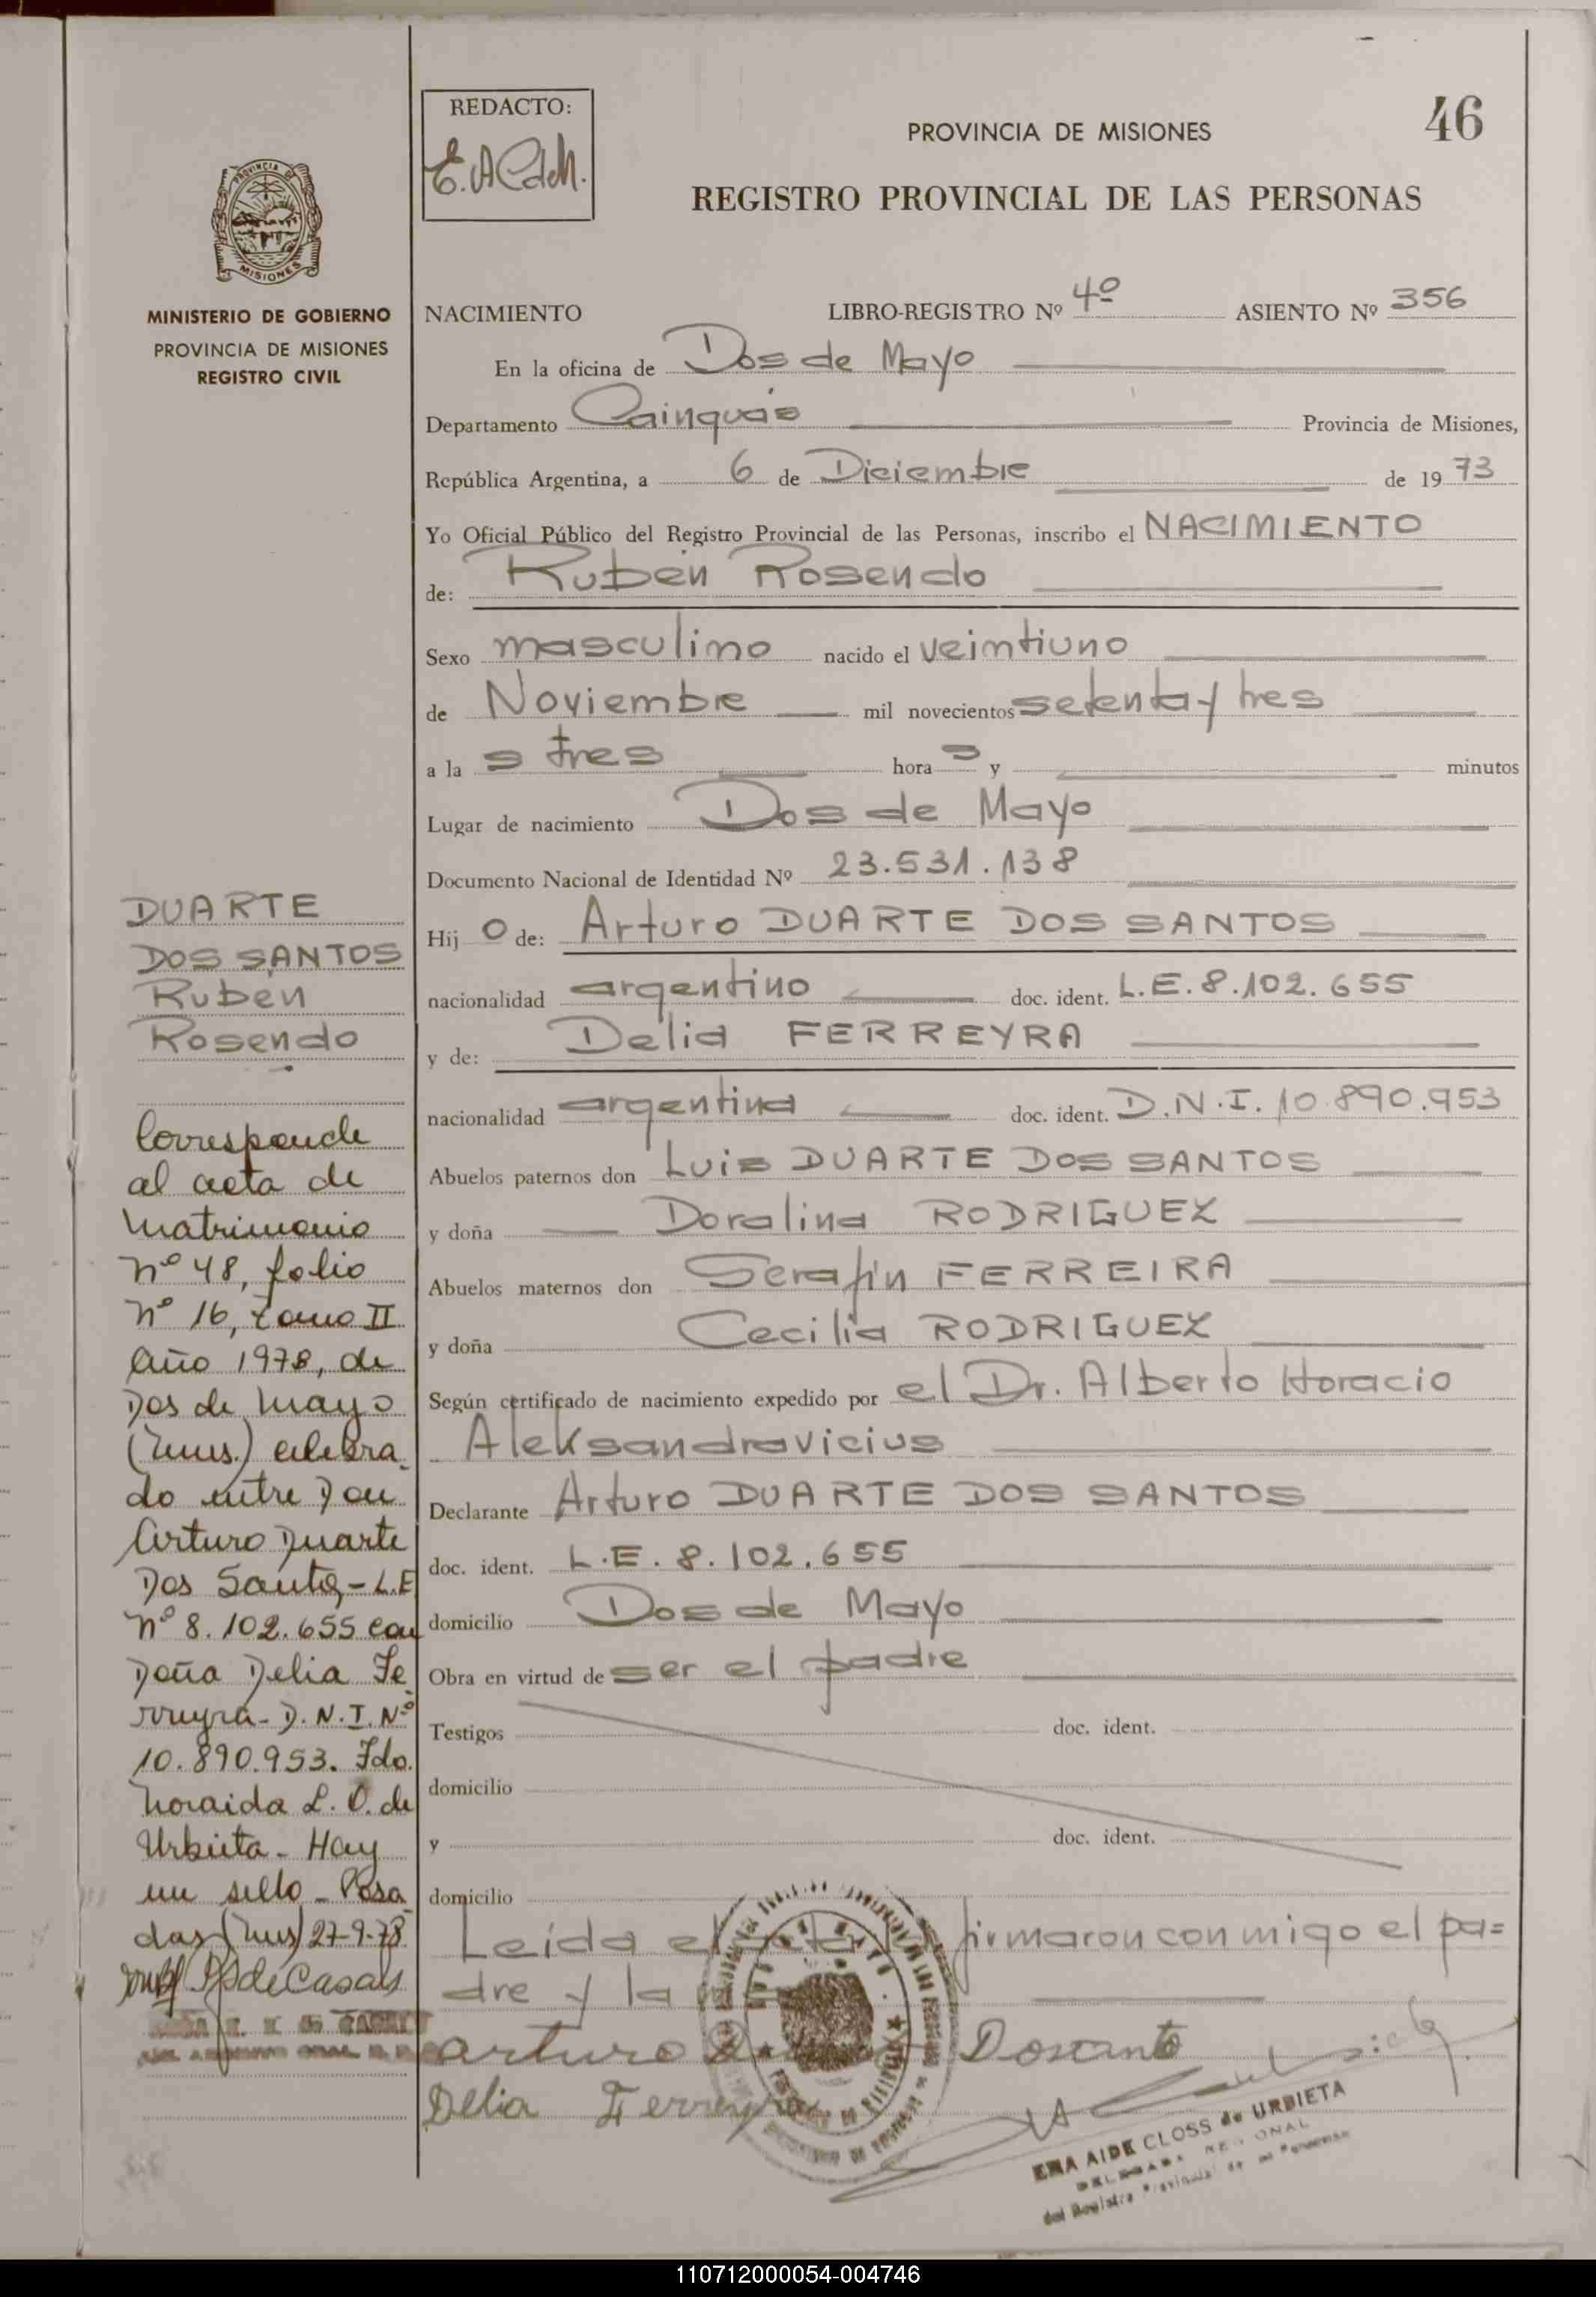 46
REDACTO:
E.ACdeM.
PROVINCIA DE MISIONES
REGISTRO PROVINCIAL DE LAS PERSONAS
PROVINCIA DE
MISIONES
MINISTERIO DE GOBIERNO
PROVINCIA DE MISIONES
REGISTRO CIVIL
NACIMIENTO LIBRO-REGISTRO Nº 4º ASIENTO Nº 356
En la oficina de Dos de Mayo
Departamento Cainguás Provincia de Misiones,
República Argentina, a 6 de Diciembre de 1973
Yo Oficial Público del Registro Provincial de las Personas, inscribo el NACIMIENTO
de: Rubén Rosendo
Sexo masculino nacido el veintiuno
de Noviembre mil novecientos setenta y tres
a la s tres hora s y minutos
Lugar de nacimiento Dos de Mayo
Documento Nacional de Identidad Nº 23.531.138
Hij o de: Arturo DUARTE DOS SANTOS
nacionalidad argentino doc. ident. L.E. 8.102.655
y de: Delia FERREYRA
nacionalidad argentina doc. ident. D.N.I. 10.890.953
Abuelos paternos don Luis DUARTE DOS SANTOS
y doña Doralina RODRIGUEZ
Abuelos maternos don Serafin FERREIRA
y doña Cecilia RODRIGUEZ
Según certificado de nacimiento expedido por el Dr. Alberto Horacio
Aleksandravicius
Declarante Arturo DUARTE DOS SANTOS
doc. ident. L.E. 8.102.655
domicilio Dos de Mayo
Obra en virtud de ser el padre
Testigos doc. ident.
domicilio
y doc. ident.
domicilio
Leída el firmaron conmigo el pa=
dre y la
Arturo Dosanto
Delia Ferreyra
EMA AIDE CLOSS de URBIETA
DELEGADA REGIONAL
del Registro Provincial de las Personas
DUARTE
DOS SANTOS
Rubén
Rosendo
Corresponde
al acta de
matrimonio
nº 48, folio
nº 16, tomo II
año 1978, de
Dos de Mayo
(Mns.) celebra
do entre Don
Arturo Duarte
Dos Santos - L.E
nº 8.102.655 con
Doña Delia Fe
rreyra - D.N.I. Nº
10.890.953. Fdo.
Noraida L. O. de
Urbieta - Hay
un sello - Posa
das (Mns) 27-9-78
de Casals
110712000054-004746